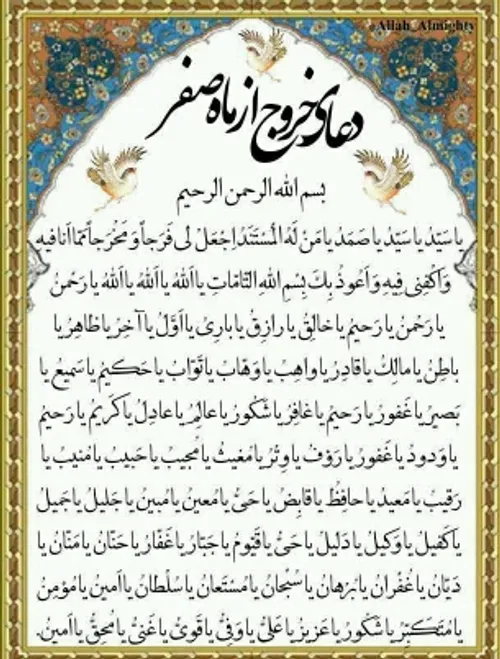 Allah_Almighty
دعای خروج از ماه صفر
بسم الله الرحمن الرحیم
یا سَیّدُ یا سَیّدُ یا صَمَدُ یا مَنْ لَهُ الْمُسْتَنَدُ اِجْعَلْ لی فَرَجاً وَ مَخْرَجاً مِمّا اَنَا فیهِ
وَ اَکْفِنی فِیهِ وَ اَعوذُ بِكَ بِسْمِ اللهِ التّامّاتِ یا اَللهُ یا اَللهُ یا اَللهُ یا رَحْمنُ
یا رَحْمنُ یا رَحیمُ یا خالِقُ یا رازِقُ یا بارِیُ یا اَوَّلُ یا آخِرُ یا ظاهِرُ یا
باطِنُ یا مالِكُ یا قادِرُ یا واهِبُ یا وَهّابُ یا تَوّابُ یا حَکیمُ یا سَمیعُ یا
بَصیرُ یا غَفورُ یا رَحیمُ یا غافِرُ یا شَکُورُ یا عالِمُ یا عادِلُ یا کَریمُ یا رَحیمُ
یا وَدودُ یا غَفورُ یا رَؤفُ یا وِتْرُ یا مُغیثُ یا مُجیبُ یا حَبیبُ یا مُنیبُ یا
رَقیبُ یا مَعیدُ یا حافِظُ یا قابِضُ یا حَیُّ یا مُعینُ یا مُبینُ یا جَلیلُ یا جَمیلُ
یا کَفیلُ یا وَکیلُ یا دَلیلُ یا حَیُّ یا قَیّومُ یا جَبّارُ یا غَفّارُ یا حَنّانُ یا مَنّانُ یا
دَیّانُ یا غُفْرانُ یا بُرْهانُ یا سُبْحانُ یا مُسْتَعانُ یا سُلْطانُ یا اَمینُ یا مُؤمِنُ
یا مُتَکَبِّرُ یا شَکُورُ یا عَزیزُ یا عَلیُّ یا وَفِیُّ یا قَویُّ یا غَنیُّ یا مُحِقُّ یا اَمینُ.